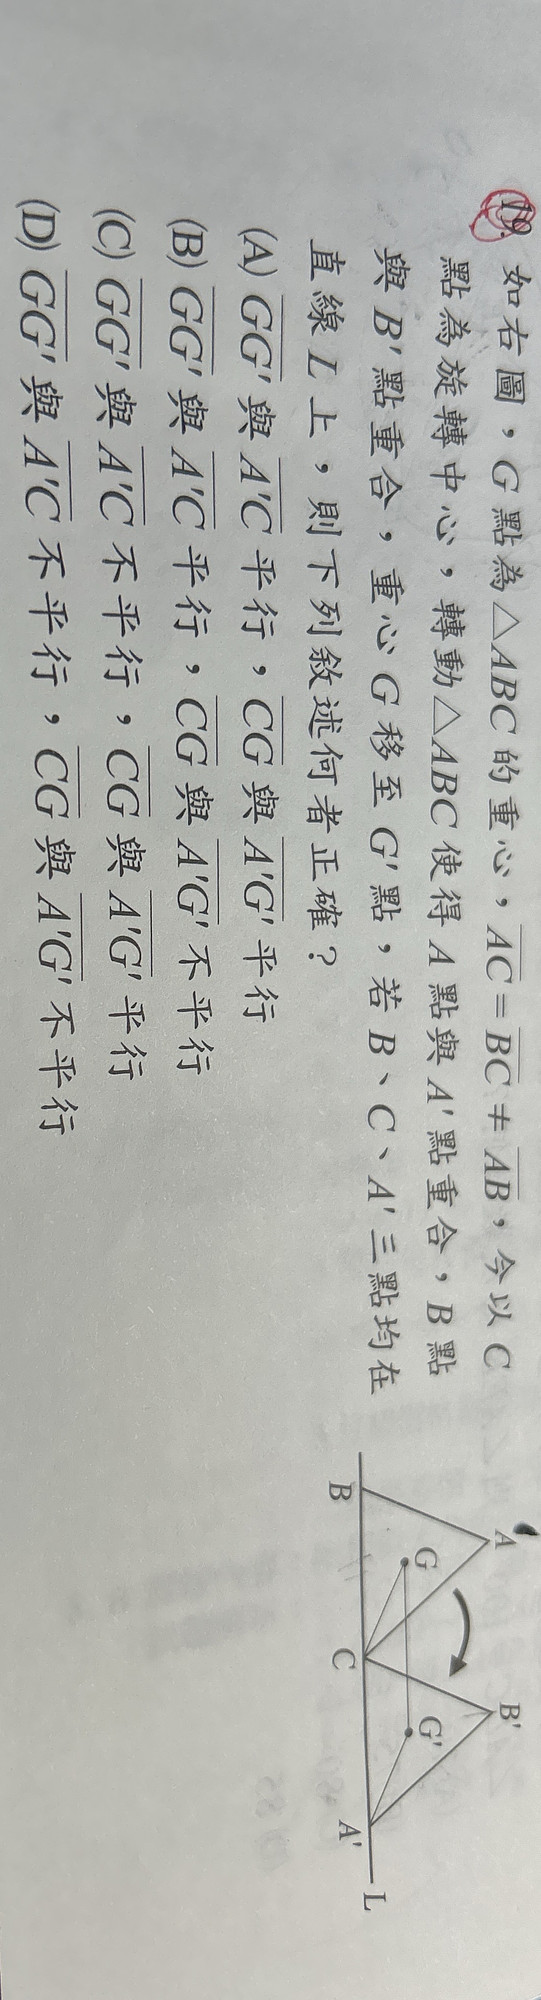 19. 如右圖，G 點為△ABC 的重心，AC＝BC≠AB，今以 C
點為旋轉中心，轉動△ABC 使得 A 點與 A' 點重合，B 點
與 B' 點重合，重心 G 移至 G' 點，若 B、C、A' 三點均在
直線 L 上，則下列敘述何者正確？
(A) GG' 與 A'C 平行，CG 與 A'G' 平行
(B) GG' 與 A'C 平行，CG 與 A'G' 不平行
(C) GG' 與 A'C 不平行，CG 與 A'G' 平行
(D) GG' 與 A'C 不平行，CG 與 A'G' 不平行
A B'
G G'
B C A' L